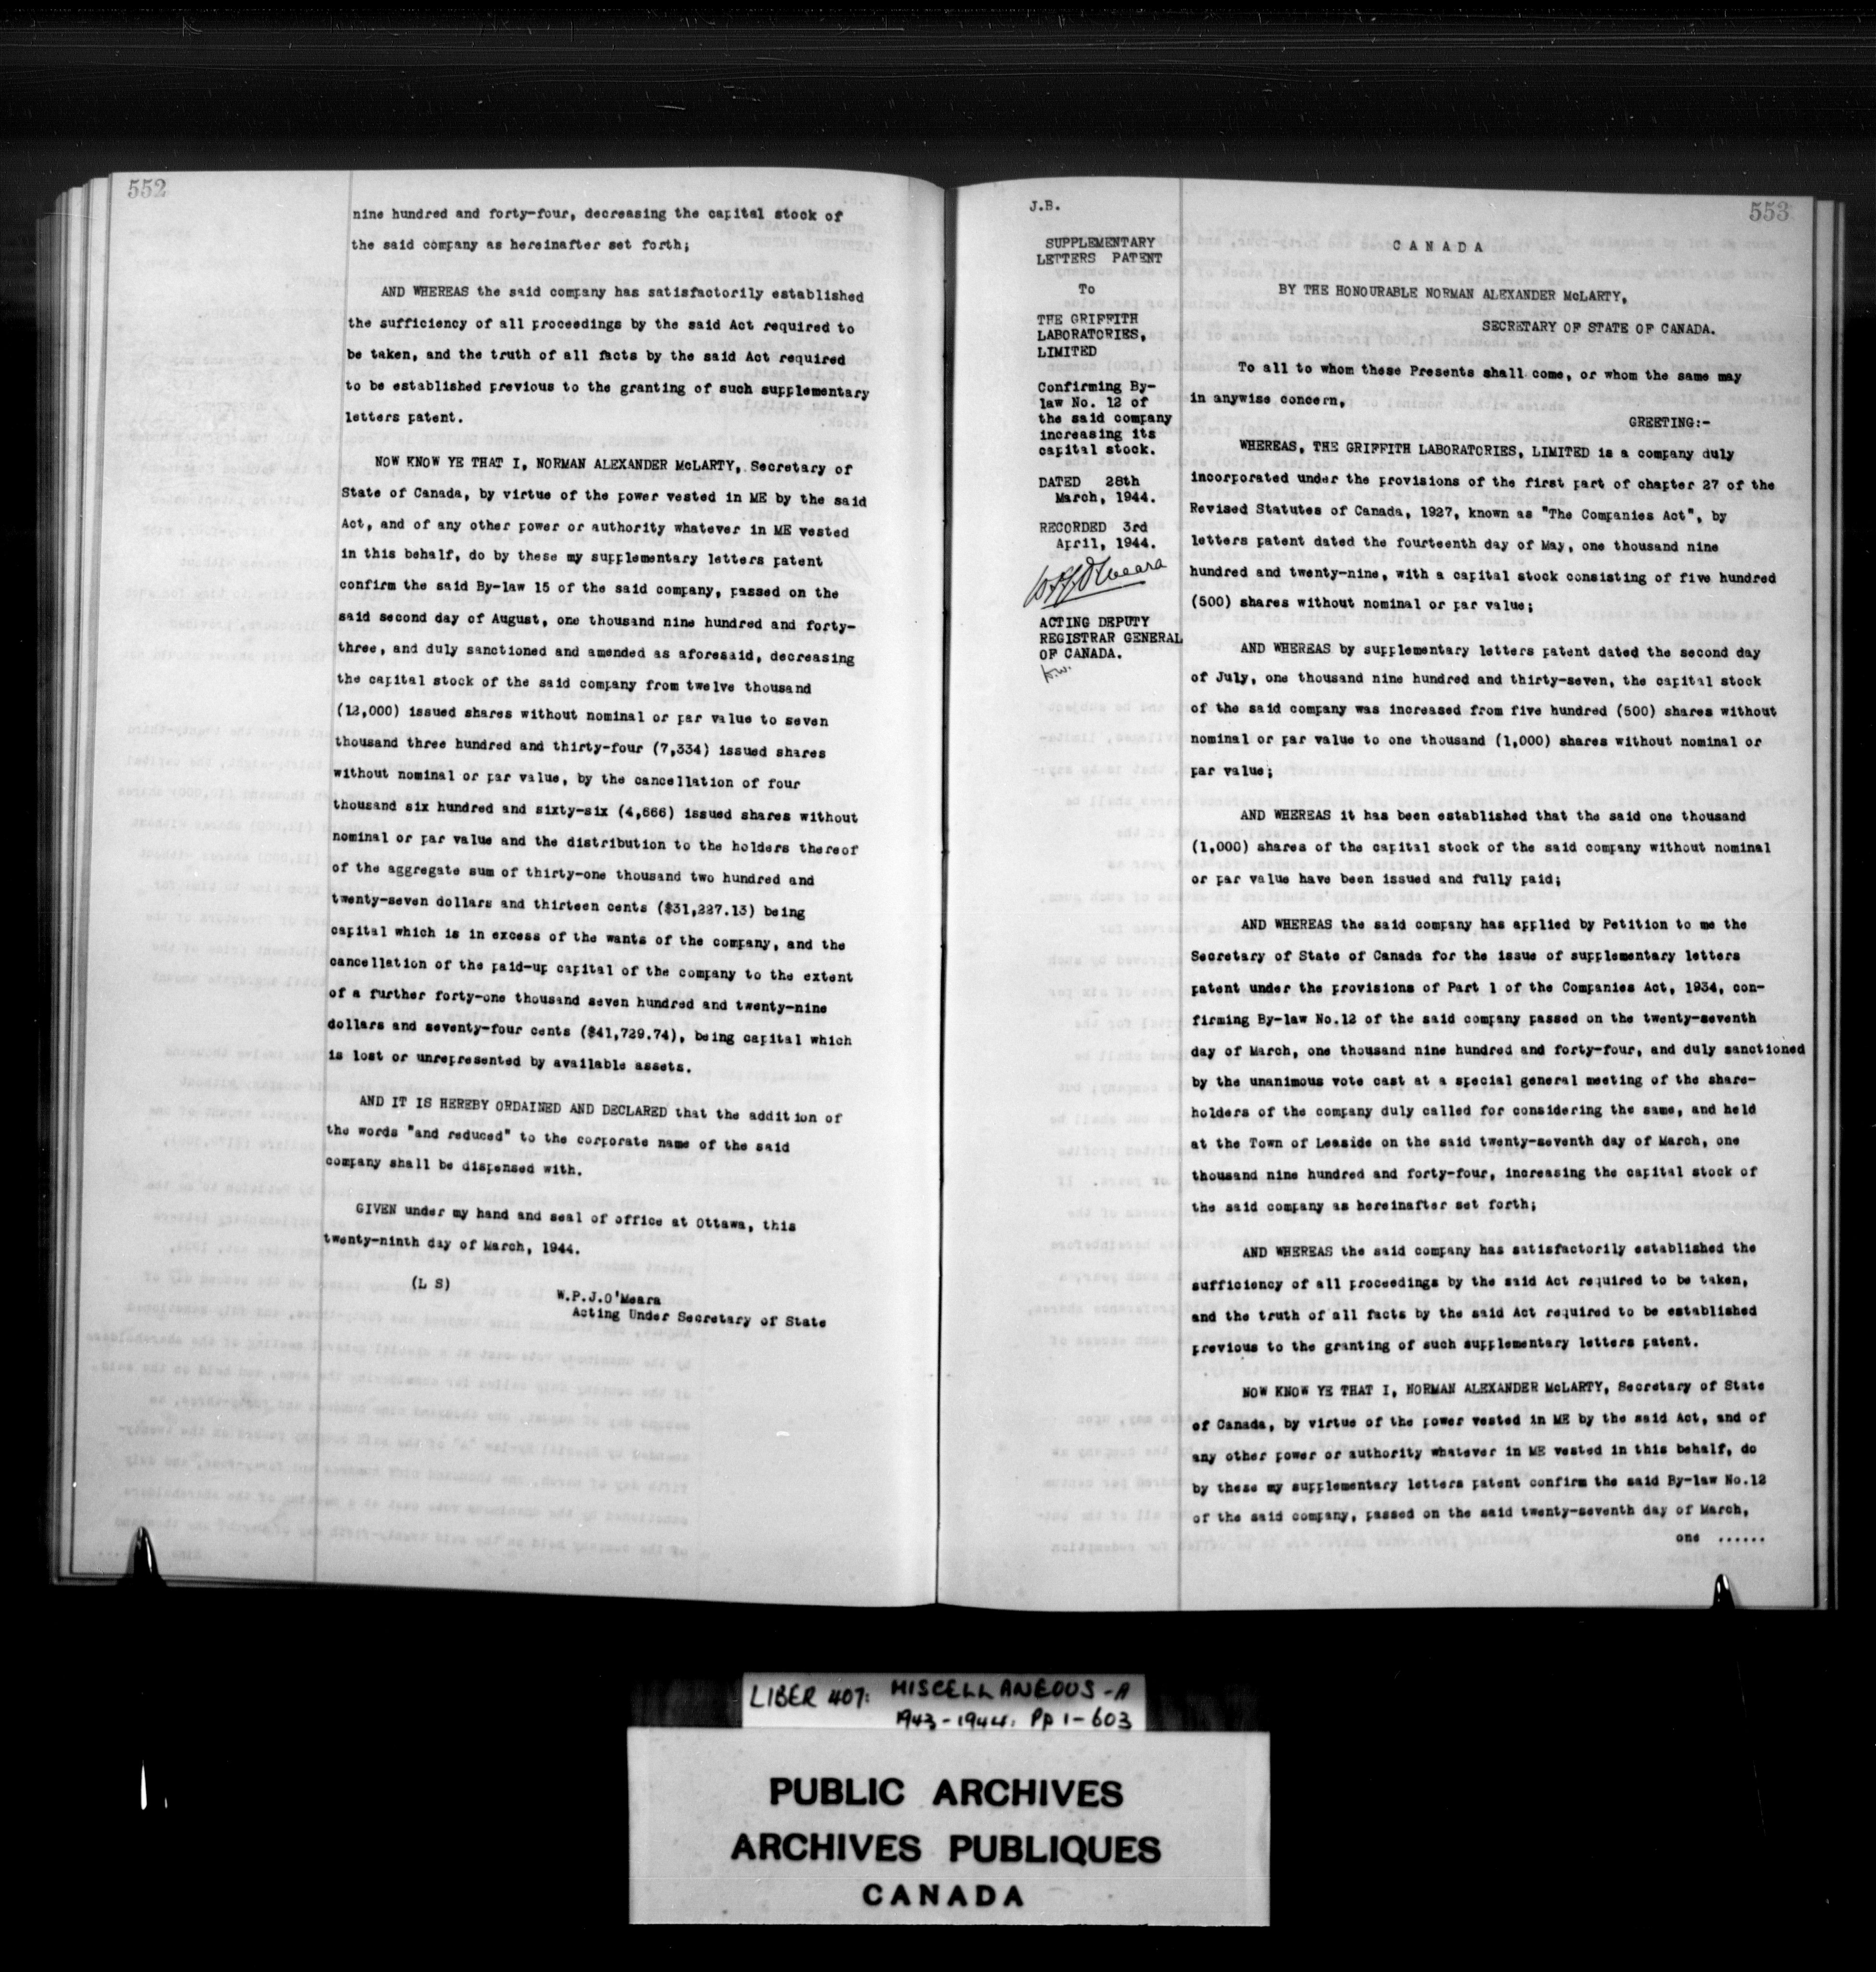 552
nine hundred and forty-four, decreasing the capital stock of
the said company as hereinafter set forth;
AND WHEREAS the said company has satisfactorily established
the sufficiency of all proceedings by the said Act required to
be taken, and the truth of all facts by the said Act required
to be established previous to the granting of such supplementary
letters patent.
NOW KNOW YE THAT I, NORMAN ALEXANDER McLARTY, Secretary of
State of Canada, by virtue of the power vested in ME by the said
Act, and of any other power or authority whatever in ME vested
in this behalf, do by these my supplementary letters patent
confirm the said By-law 15 of the said company, passed on the
said second day of August, one thousand nine hundred and forty-
three, and duly sanctioned and amended as aforesaid, decreasing
the capital stock of the said company from twelve thousand
(12,000) issued shares without nominal or par value to seven
thousand three hundred and thirty-four (7,334) issued shares
without nominal or par value, by the cancellation of four
thousand six hundred and sixty-six (4,666) issued shares without
nominal or par value and the distribution to the holders thereof
of the aggregate sum of thirty-one thousand two hundred and
twenty-seven dollars and thirteen cents ($31,227.13) being
capital which is in excess of the wants of the company, and the
cancellation of the paid-up capital of the company to the extent
of a further forty-one thousand seven hundred and twenty-nine
dollars and seventy-four cents ($41,729.74), being capital which
is lost or unrepresented by available assets.
AND IT IS HEREBY ORDAINED AND DECLARED that the addition of
the words "and reduced" to the corporate name of the said
company shall be dispensed with.
GIVEN under my hand and seal of office at Ottawa, this
twenty-ninth day of March, 1944.
(L S)
W.P.J.O'Meara
Acting Under Secretary of State
J.B.
553
SUPPLEMENTARY
LETTERS PATENT
To
THE GRIFFITH
LABORATORIES,
LIMITED
Confirming By-
law No. 12 of
the said company
increasing its
capital stock.
DATED 28th
March, 1944.
RECORDED 3rd
April, 1944.
ACTING DEPUTY
REGISTRAR GENERAL
OF CANADA.
CANADA
BY THE HONOURABLE NORMAN ALEXANDER McLARTY,
SECRETARY OF STATE OF CANADA.
To all to whom these Presents shall come, or whom the same may
in anywise concern,
GREETING:-
WHEREAS, THE GRIFFITH LABORATORIES, LIMITED is a company duly
incorporated under the provisions of the first part of chapter 27 of the
Revised Statutes of Canada, 1927, known as "The Companies Act", by
letters patent dated the fourteenth day of May, one thousand nine
hundred and twenty-nine, with a capital stock consisting of five hundred
(500) shares without nominal or par value;
AND WHEREAS by supplementary letters patent dated the second day
of July, one thousand nine hundred and thirty-seven, the capital stock
of the said company was increased from five hundred (500) shares without
nominal or par value to one thousand (1,000) shares without nominal or
par value;
AND WHEREAS it has been established that the said one thousand
(1,000) shares of the capital stock of the said company without nominal
or par value have been issued and fully paid;
AND WHEREAS the said company has applied by Petition to me the
Secretary of State of Canada for the issue of supplementary letters
patent under the provisions of Part 1 of the Companies Act, 1934, con-
firming By-law No.12 of the said company passed on the twenty-seventh
day of March, one thousand nine hundred and forty-four, and duly sanctioned
by the unanimous vote cast at a special general meeting of the share-
holders of the company duly called for considering the same, and held
at the Town of Leaside on the said twenty-seventh day of March, one
thousand nine hundred and forty-four, increasing the capital stock of
the said company as hereinafter set forth;
AND WHEREAS the said company has satisfactorily established the
sufficiency of all proceedings by the said Act required to be taken,
and the truth of all facts by the said Act required to be established
previous to the granting of such supplementary letters patent.
NOW KNOW YE THAT I, NORMAN ALEXANDER McLARTY, Secretary of State
of Canada, by virtue of the power vested in ME by the said Act, and of
any other power or authority whatever in ME vested in this behalf, do
by these my supplementary letters patent confirm the said By-law No.12
of the said company, passed on the said twenty-seventh day of March,
one ......
LIBER 407: MISCELLANEOUS-A
1943-1944: Pp 1-603
PUBLIC ARCHIVES
ARCHIVES PUBLIQUES
CANADA